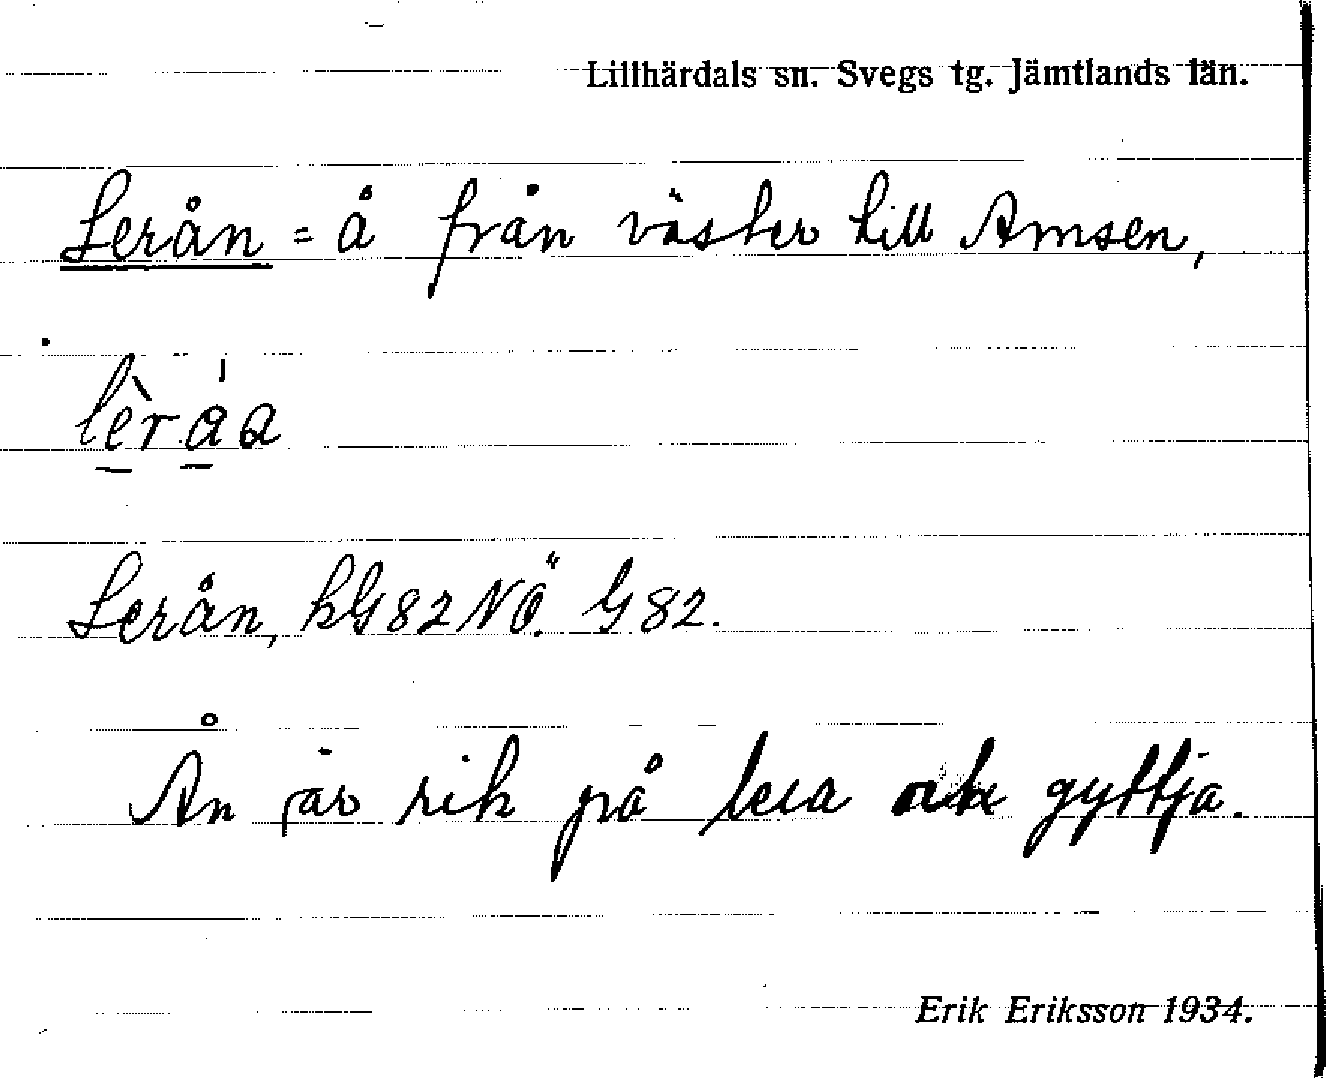 Lillhärdals sn. Svegs tg. Jämtlands län.
Lerån = å från väster till Amsen,
lèråa
Lerån, kG82NÖ. G82.
Ån är rik på lera och gyttja.
Erik Eriksson 1934.